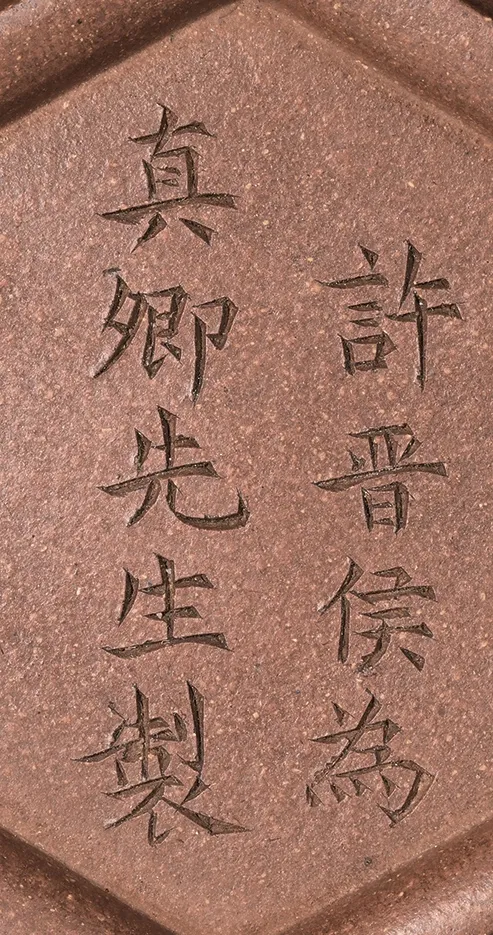 許晋侯為
真卿先生製